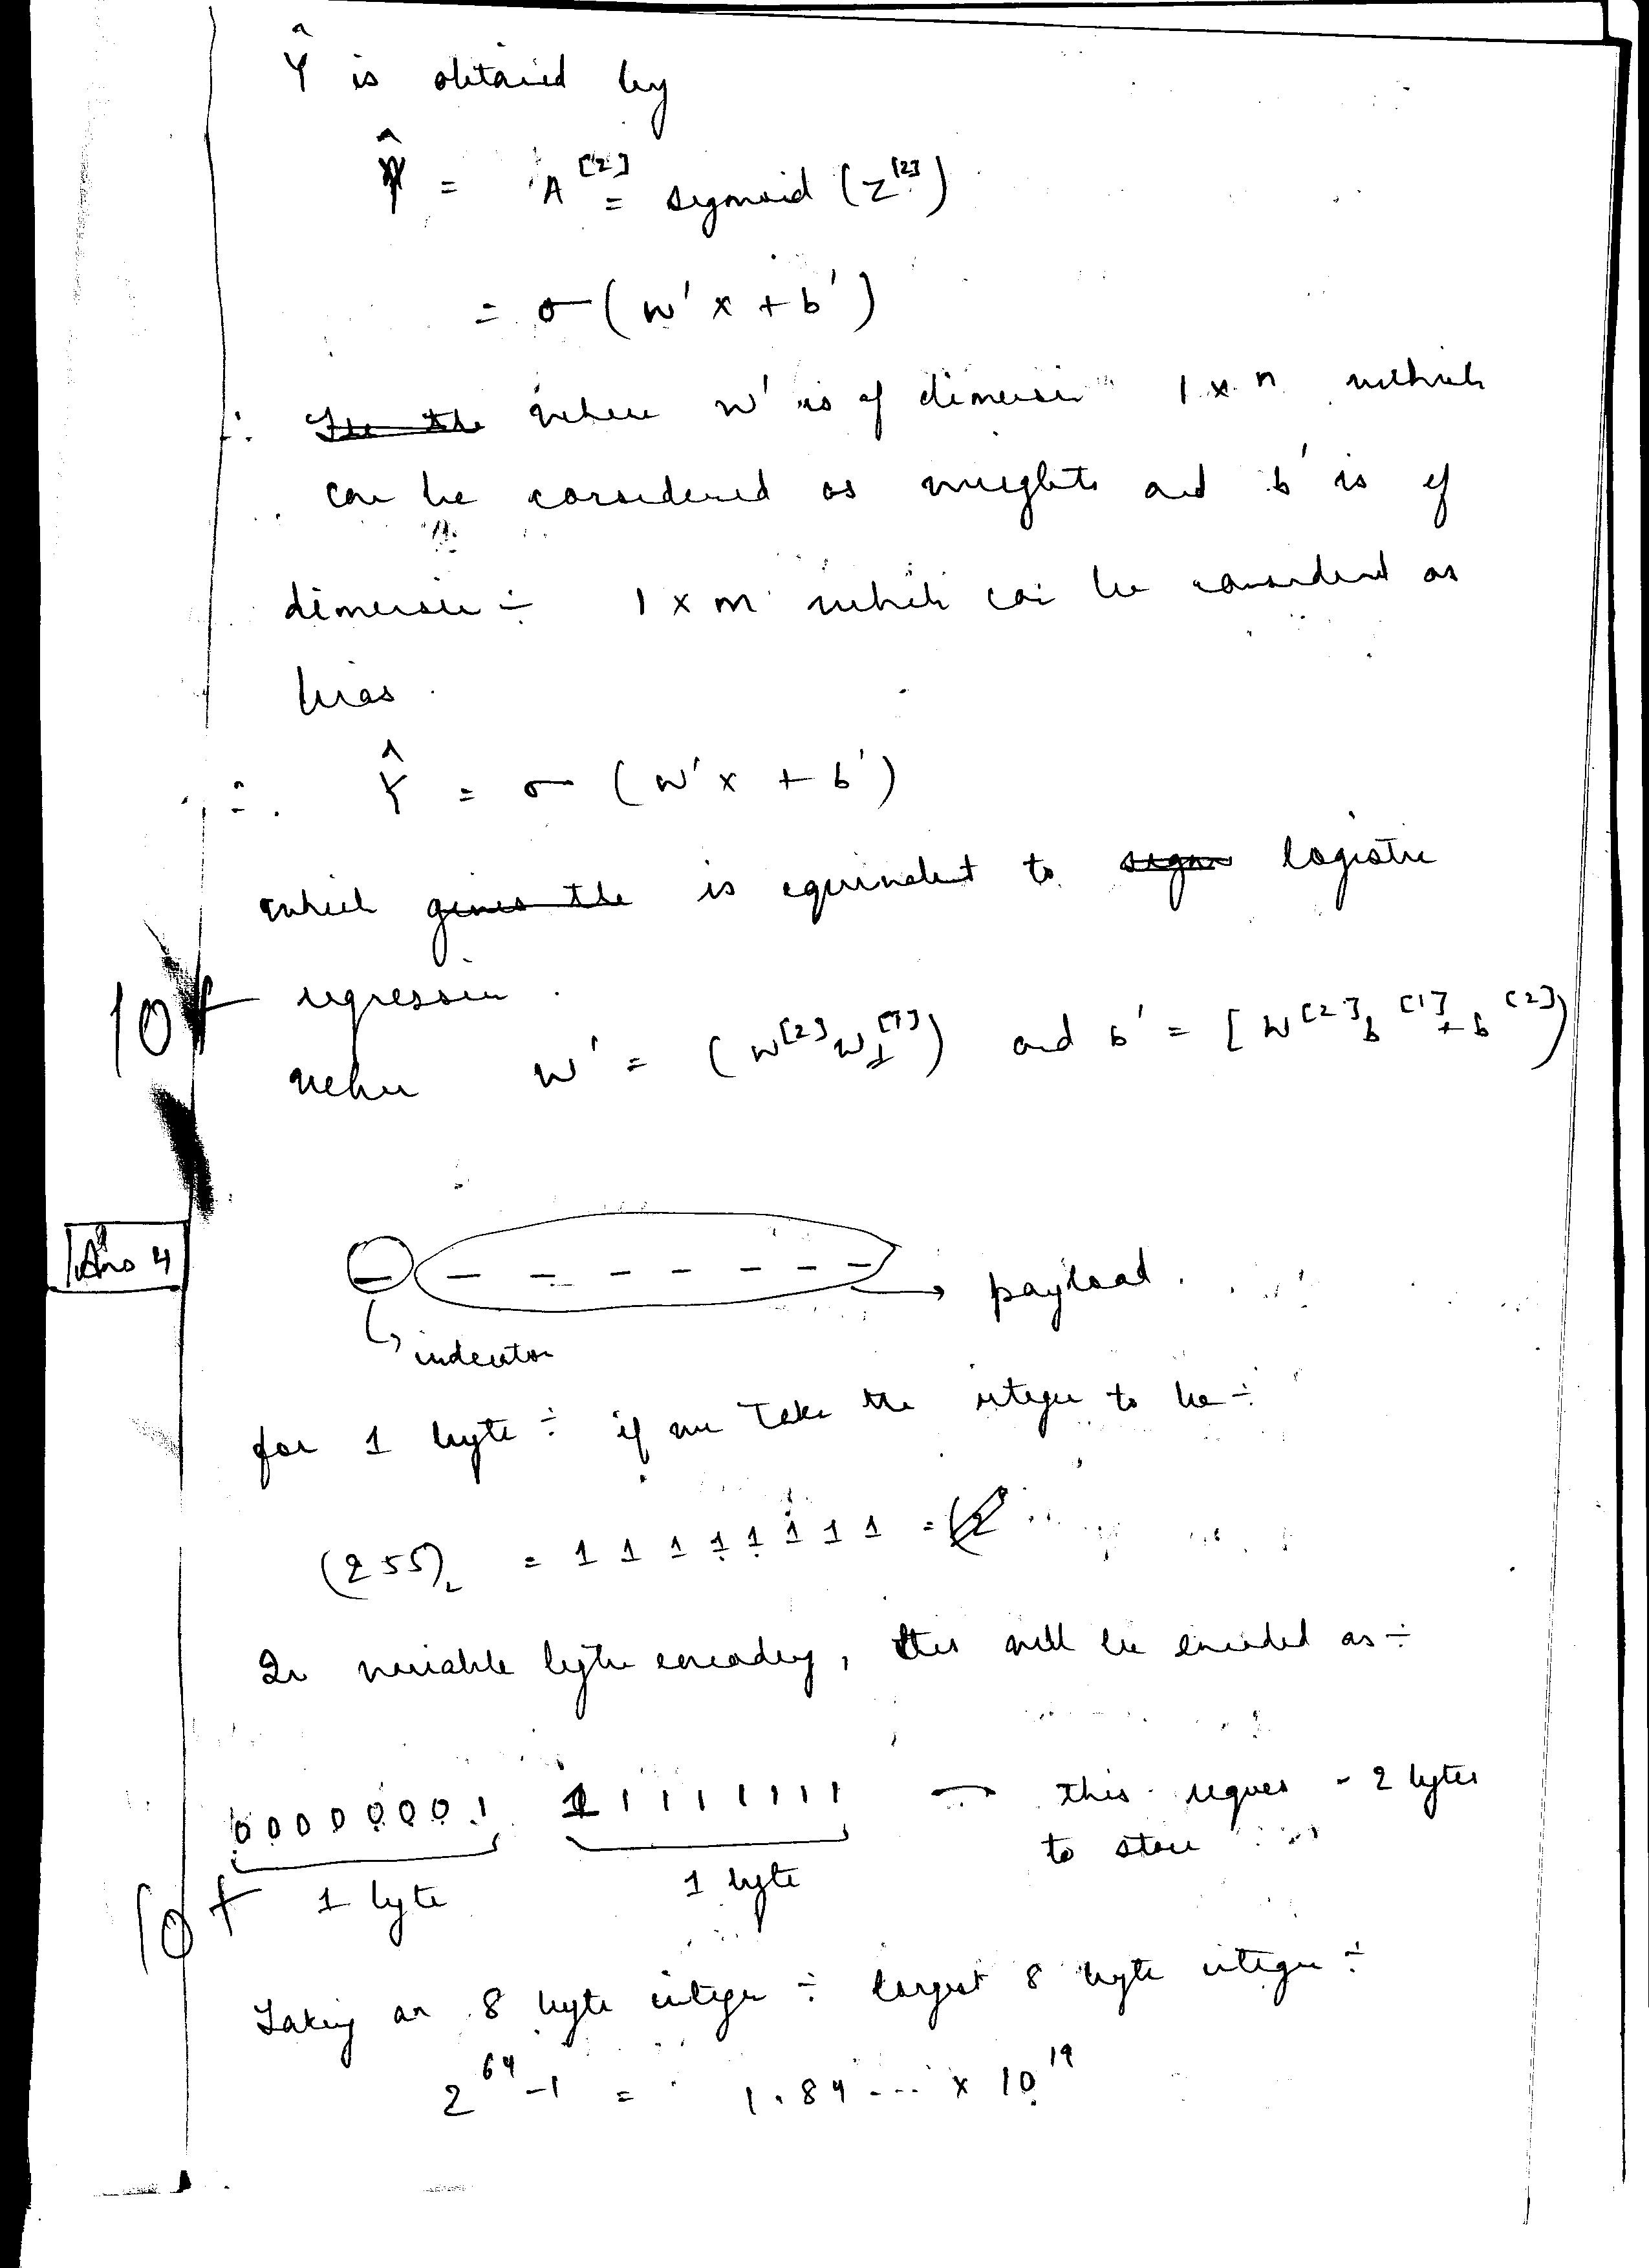 Ŷ is obtained by
Ŷ = A^[2] = sigmoid (Z^[2])
= σ(w'x + b')
∴ The the where w' is of dimension 1 x n which
can be considered as weights and b' is of
dimension ÷ 1 x m which can be considered as
bias.
∴ Ŷ = σ (w'x + b')
which gives the is equivalent to sigm logistic
10+ regression.
where w' = (W^[2] W^[1]) and b' = [W^[2] b^[1] + b^[2])
Ans 4
_ _ _ _ _ _ _ _ → payload.
↳ indicator
for 1 byte ÷ if we take the integer to be ÷
(255)₂ = 1 1 1 1 1 1 1 1 =
In variable byte encoding, this will be encoded as ÷
00000001 11111111 → This requires - 2 bytes
to store
10+ 1 byte 1 byte
Taking an 8 byte integer ÷ largest 8 byte integer ÷
2^64 - 1 = 1.84... x 10^19